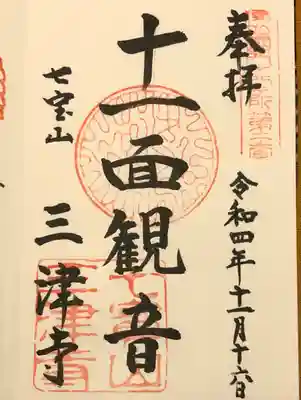 奉拝
令和四年十一月十六日
十一面観音
七宝山
三津寺